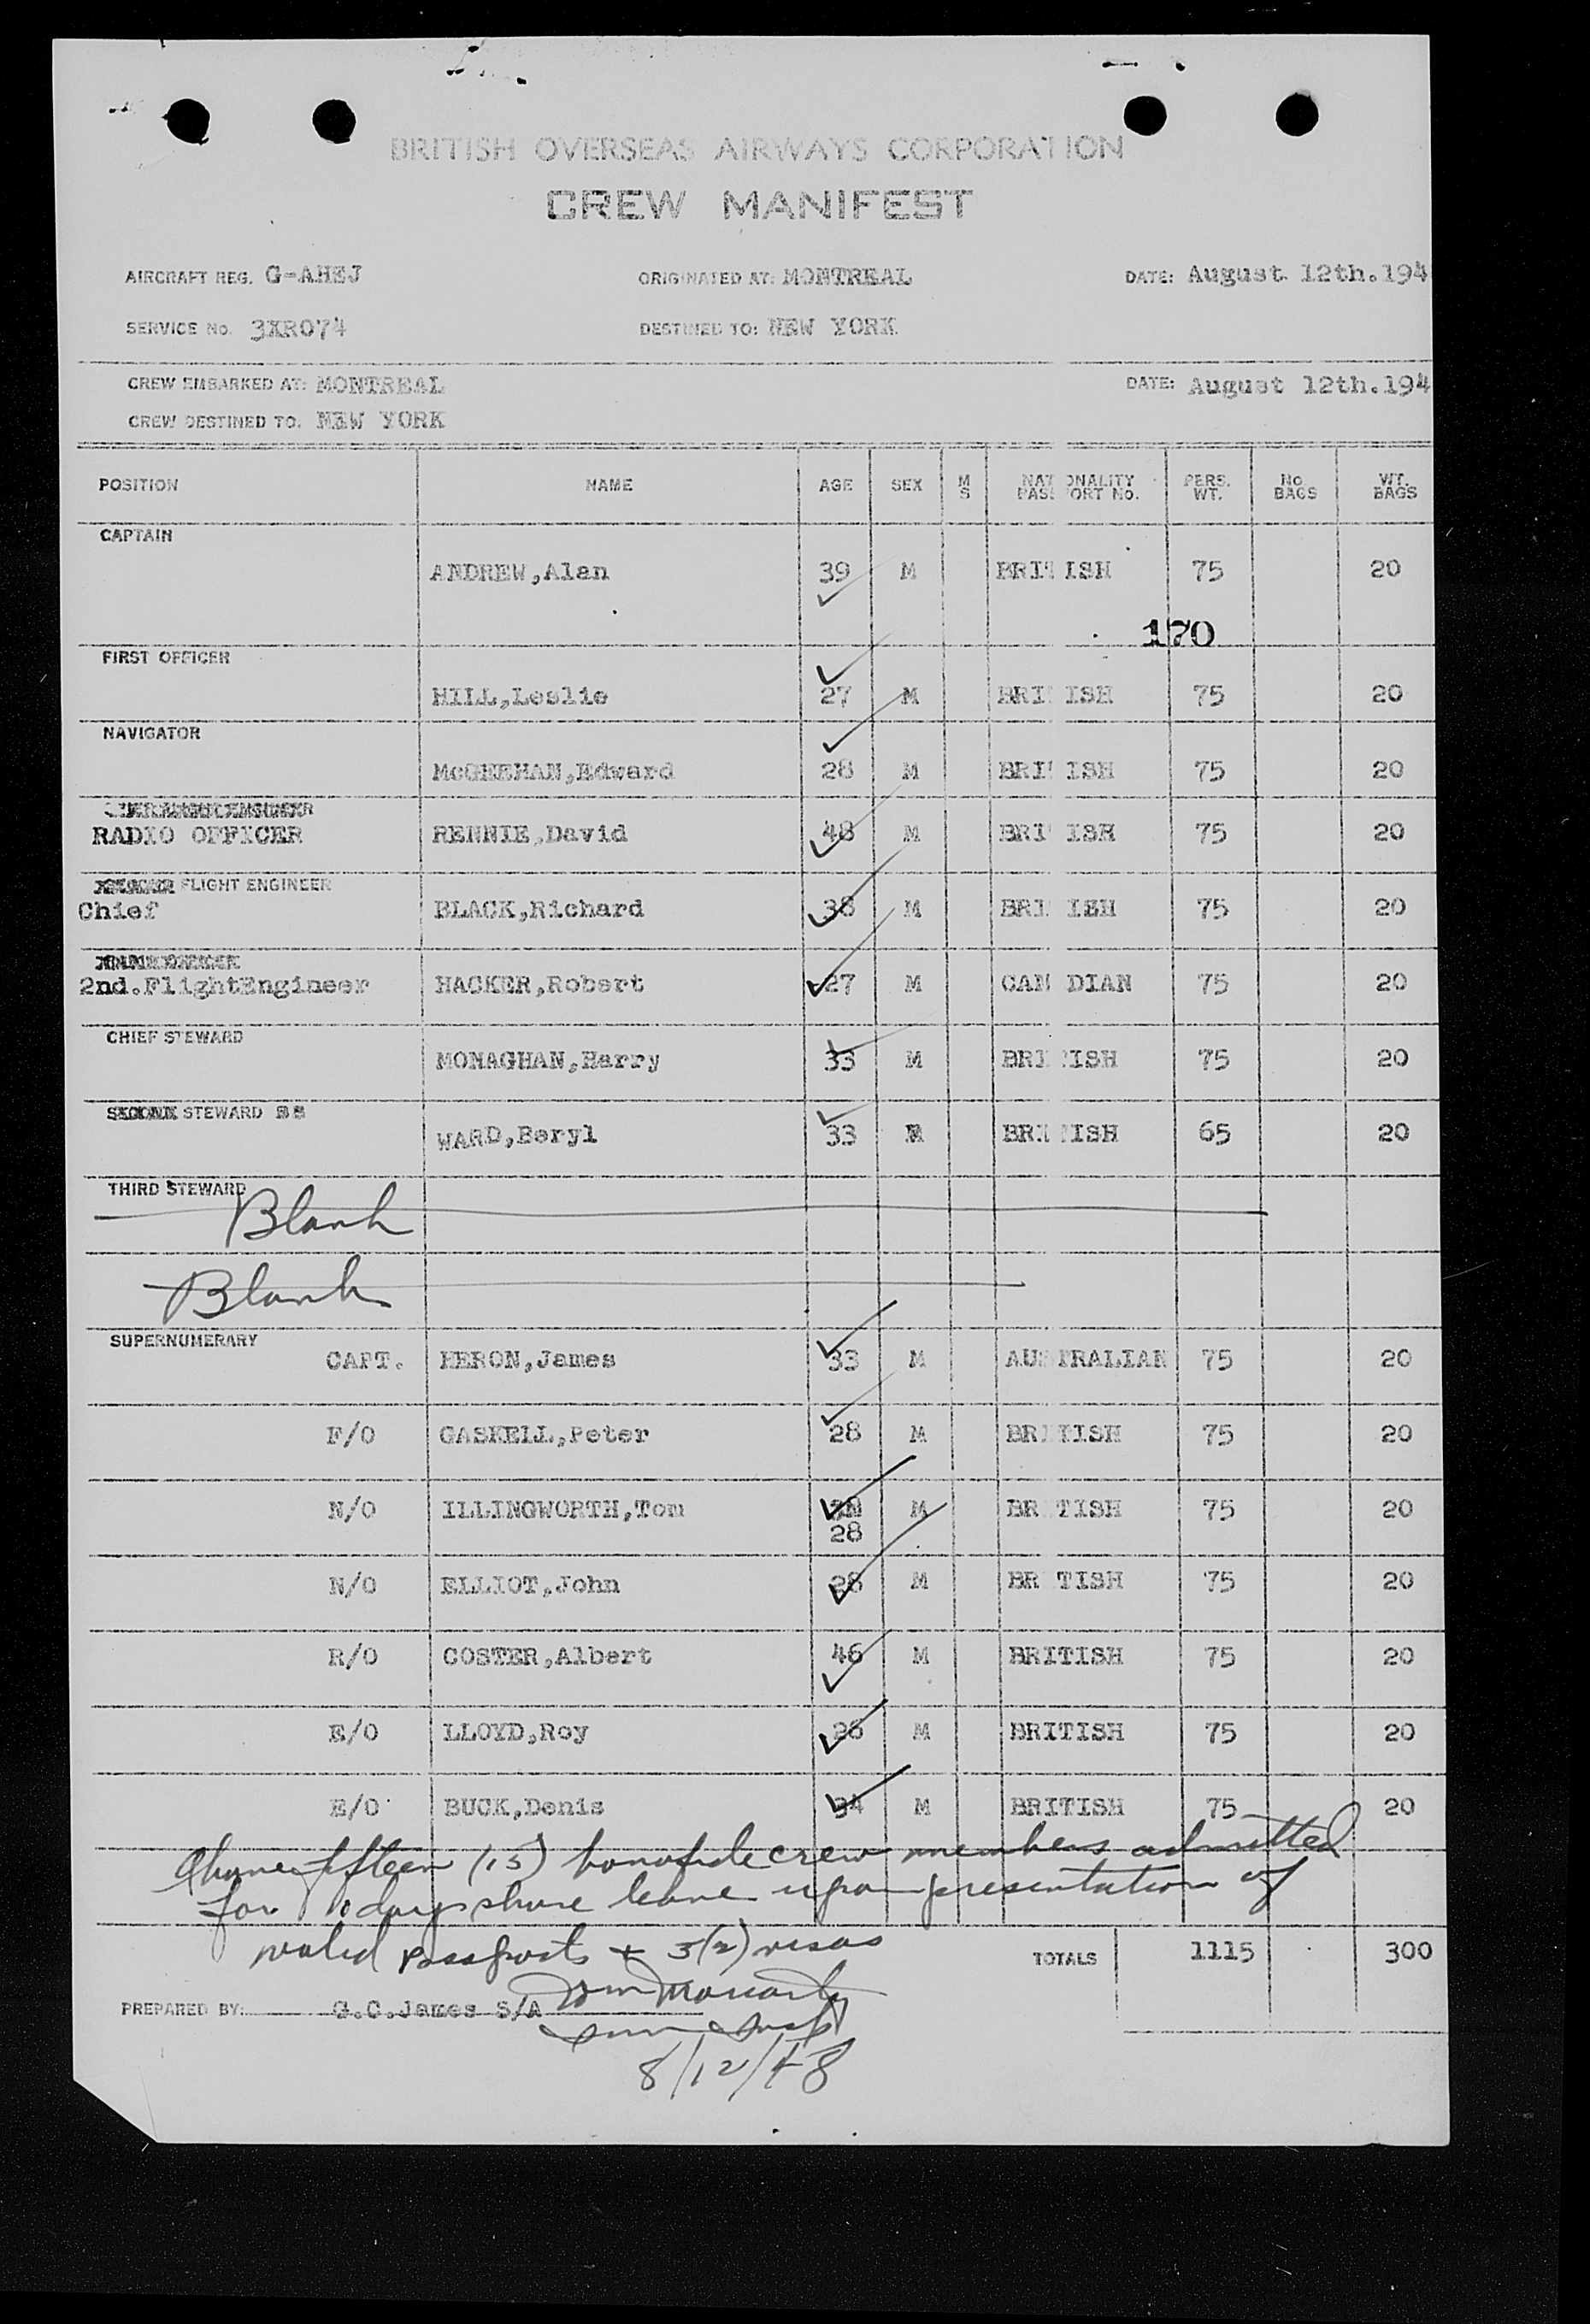 BRITISH OVERSEAS AIRWAYS CORPORATION
CREW MANIFEST
AIRCRAFT REG. G-AHEJ ORIGINATED AT: MONTREAL DATE: August 12th.194
SERVICE No. 3XR074 DESTINED TO: NEW YORK
CREW EMBARKED AT: MONTREAL DATE: August 12th.194
CREW DESTINED TO. NEW YORK
POSITION NAME AGE SEX M S NATIONALITY PASSPORT No. PERS. WT. No. BAGS WT. BAGS
CAPTAIN
ANDREW,Alan 39 M BRITISH 75 20
170
FIRST OFFICER
HILL,Leslie 27 M BRI ISH 75 20
NAVIGATOR
McGEEHAN,Edward 28 M BRI ISH 75 20
RADIO OFFICER RENNIE,David 48 M BRI ISH 75 20
FLIGHT ENGINEER
Chief BLACK,Richard 38 M BRI ISH 75 20
2nd.FlightEngineer HACKER,Robert 27 M CAN DIAN 75 20
CHIEF STEWARD
MONAGHAN,Harry 33 M BRITISH 75 20
SECOND STEWARD ss
WARD,Beryl 33 F BRITISH 65 20
THIRD STEWARD
Blank
Blank
SUPERNUMERARY
CAPT. HERON,James 33 M AUSTRALIAN 75 20
F/O GASKELL,Peter 28 M BRITISH 75 20
N/O ILLINGWORTH,Tom M BR TISH 75 20
28
N/O ELLIOT,John 28 M BR TISH 75 20
R/O COSTER,Albert 46 M BRITISH 75 20
E/O LLOYD,Roy 26 M BRITISH 75 20
E/O BUCK,Denis 34 M BRITISH 75 20
Above fifteen (15) bonafide crew members admitted
for 10 days shore leave upon presentation of
valid passports + 3(2) visas
TOTALS 1115 300
Wm Moriarty
PREPARED BY: G.C.James S/A
Imm Insp
8/12/48